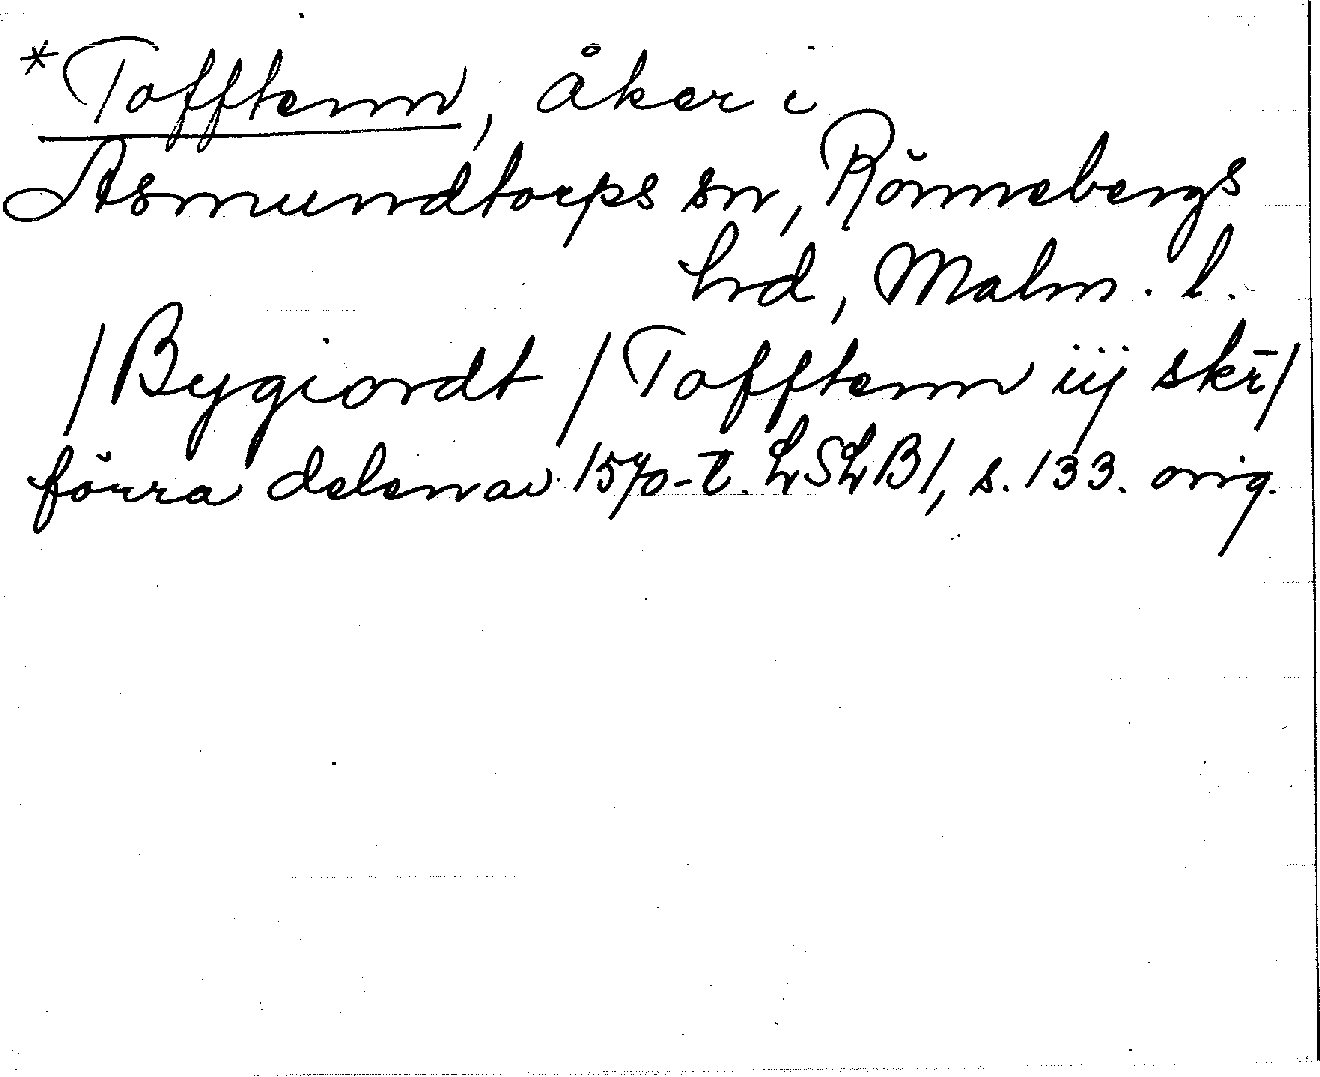 *Tofftenn, åker i
Asmundtorps sn, Rönnebergs
hd, Malm. l.
/Bygiordt/Tofftenn iij skr̄/
förra delen av 1570-t. LSLB/, s. 133. orig.